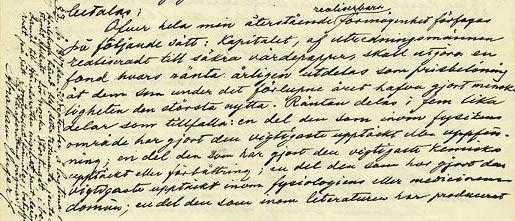 bestalas;
realiserbara
Öfver hela min återstående förmögenhet förfogas
på följande sätt: Kapitalet, af utredningsmännen
realiseradt till säkra värdepapper, skall utgöra en
fond hvars ränta årligen utdelas som prisbelöning
åt dem som under det förlupne året hafva gjort mensk-
ligheten den största nytta. Räntan delas i fem lika
delar som tillfalla: en del den som inom fysikens
område har gjort den vigtigaste upptäckt eller uppfin-
ning; en del den som har gjort den vigtigaste kemiska
upptäckt eller förbättring; en del den som har gjort den
vigtigaste upptäckt inom fysiologiens eller medicinens
domän; en del den som inom literaturen har producerat